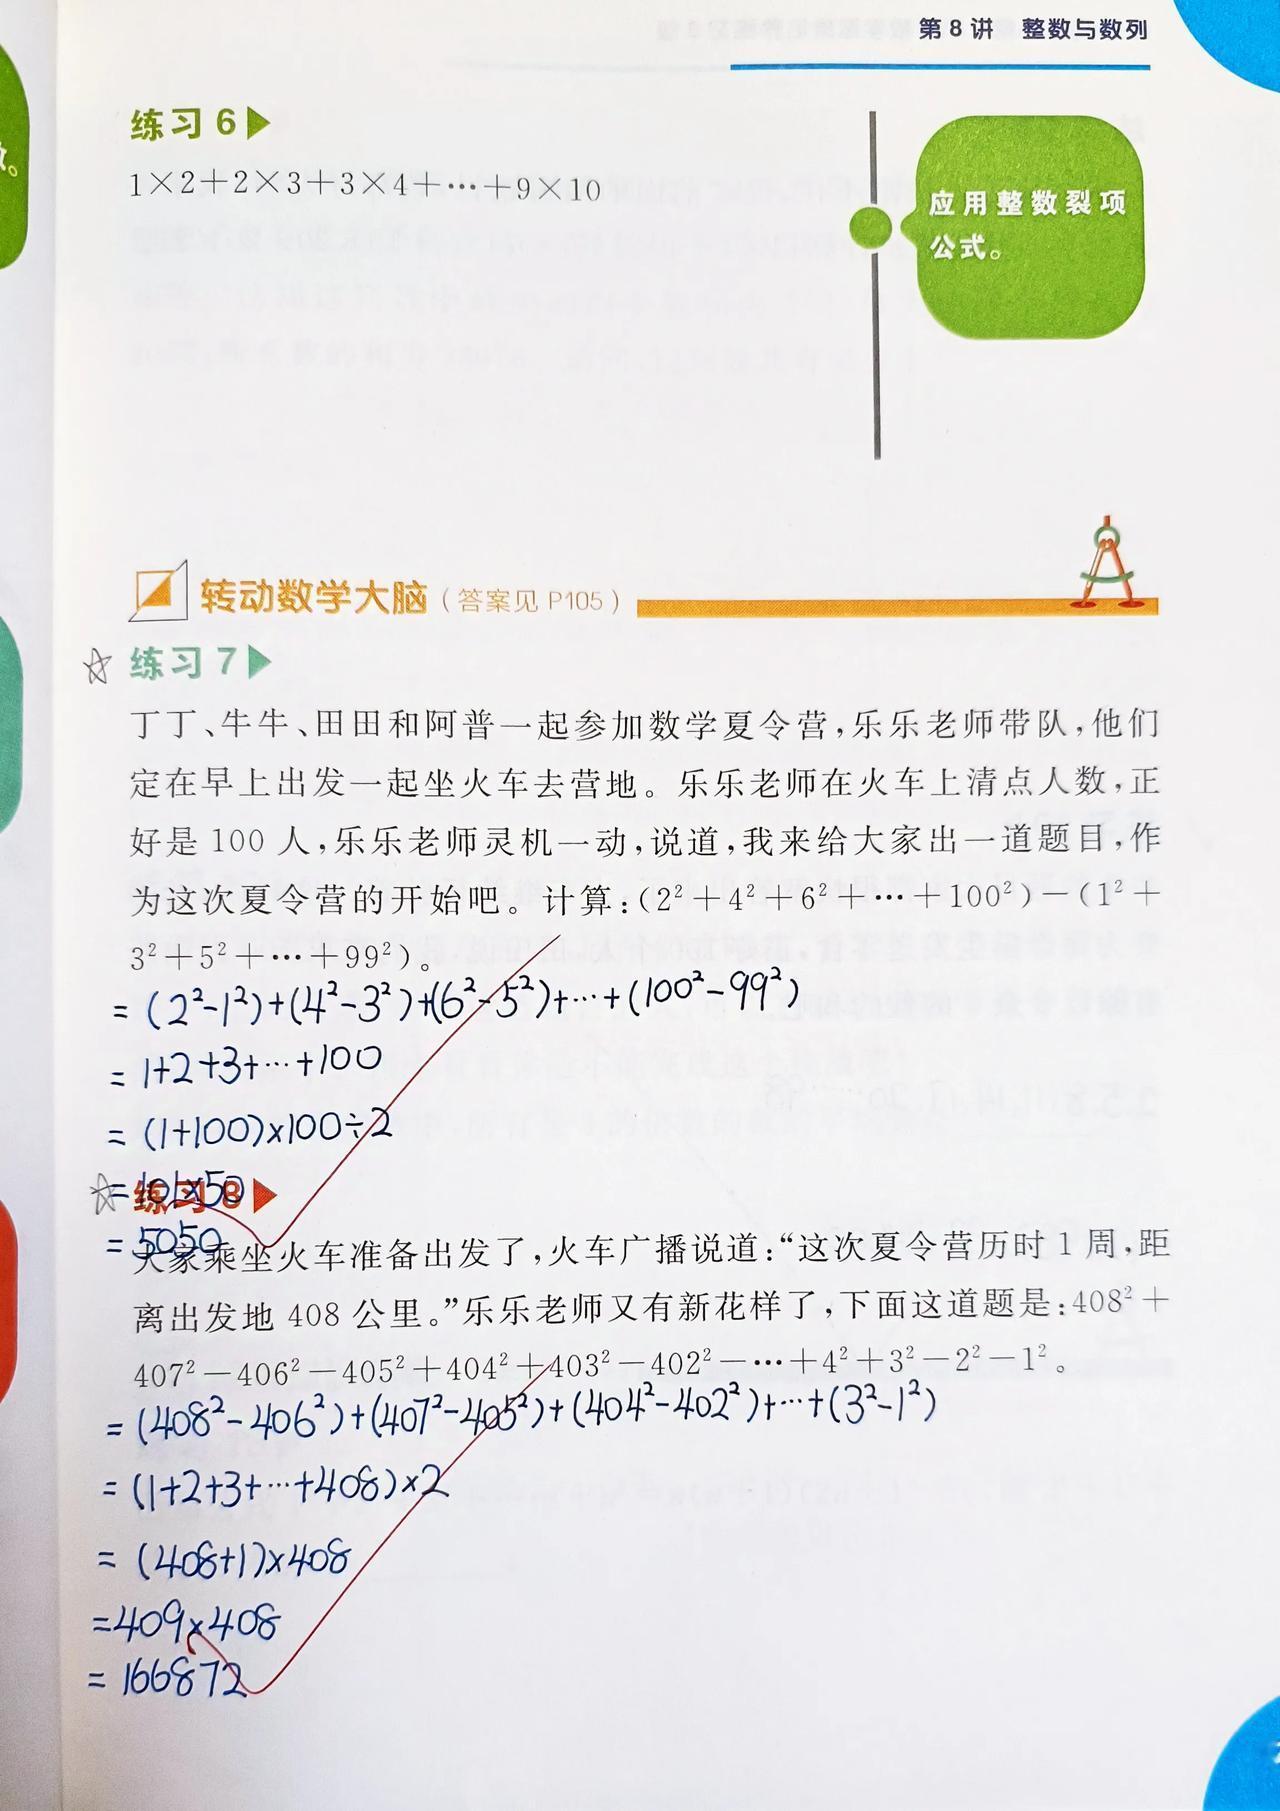 第8讲 整数与数列
练习6
1×2+2×3+3×4+…+9×10
应用整数裂项
公式。
转动数学大脑(答案见P105)
练习7
丁丁、牛牛、田田和阿普一起参加数学夏令营,乐乐老师带队,他们
定在早上出发一起坐火车去营地。乐乐老师在火车上清点人数,正
好是100人,乐乐老师灵机一动,说道,我来给大家出一道题目,作
为这次夏令营的开始吧。计算:(2²+4²+6²+…+100²)-(1²+
3²+5²+…+99²)。
=(2²-1²)+(4²-3²)+(6²-5²)+…+(100²-99²)
=1+2+3+…+100
=(1+100)×100÷2
=101×50
=5050
练习8
大家乘坐火车准备出发了,火车广播说道:“这次夏令营历时1周,距
离出发地408公里。”乐乐老师又有新花样了,下面这道题是:408²+
407²-406²-405²+404²+403²-402²-…+4²+3²-2²-1²。
=(408²-406²)+(407²-405²)+(404²-402²)+…+(3²-1²)
=(1+2+3+…+408)×2
=(408+1)×408
=409×408
=166872